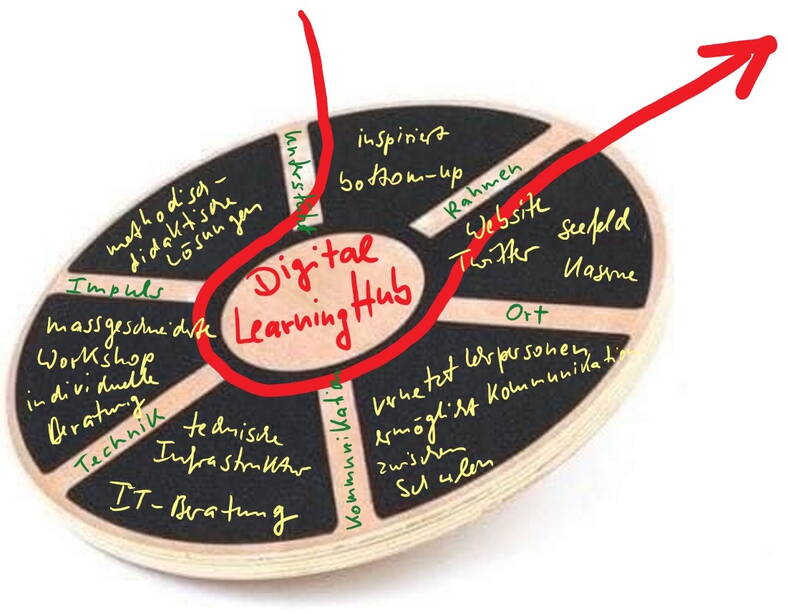 Digital
Learning Hub
Unterstützt
inspiriert
bottom-up
Rahmen
Website
Twitter
seefeld
Kaserne
Ort
vernetzt Lerpersonen
ermöglicht Kommunikation
zwischen
Schulen
Kommunikation
technische
Infrastruktur
IT-Beratung
Technik
massgeschneiderte
Workshop
individuelle
Beratung
Impuls
methodisch-
didaktische
Lösungen